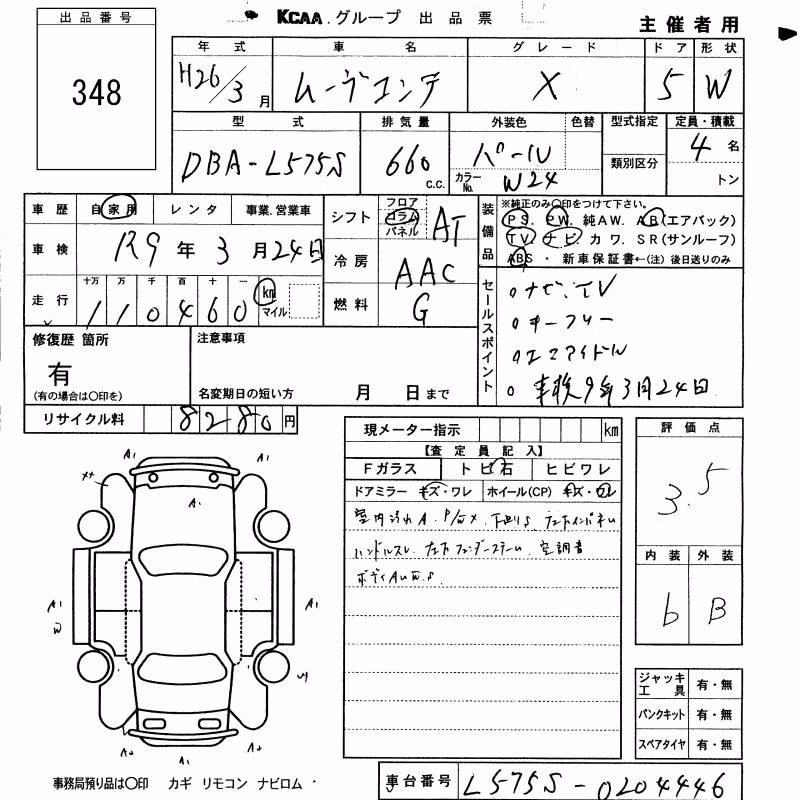 出品番号
348
KCAA.グループ 出品票
主催者用
年式 車名 グレード ドア 形状
H26/3月 ムーヴコンテ X 5 W
型式 排気量 外装色 色替 型式指定 定員・積載
DBA-L575S 660 C.C. パール 類別区分 4名
カラーNo. W24 トン
車歴 自家用 レンタ 事業.営業車
車検 R9年3月24日
走行 十万 万 千 百 十 一
110460 km マイル
シフト フロア コラム パネル AT
冷房 AAC
燃料 G
装備品 ※純正のみ○印をつけて下さい。
PS. PW. 純AW. AB(エアバック)
TV. ナビ. カワ. SR(サンルーフ)
ABS ・ 新車保証書←(注)後日送りのみ
セールスポイント
○ナビ、TV
○キーフリー
○エコアイドル
○車検9年3月24日
修復歴 箇所
有
(有の場合は○印を)
注意事項
名変期日の短い方 月 日まで
リサイクル料 8280円
現メーター指示 km
【査定員記入】
Fガラス トビ石 ヒビワレ
ドアミラー キズ・ワレ ホイール(CP) キズ・ワレ
室内汚れA.
ハンドルスレ
評価点
3.5
内装 外装
6 B
A1
A1
A1
W
A1
A2
A1
A2
ジャッキ工具 有・無
パンクキット 有・無
スペアタイヤ 有・無
事務局預り品は○印 カギ リモコン ナビロム
車台番号 L575S-0204446